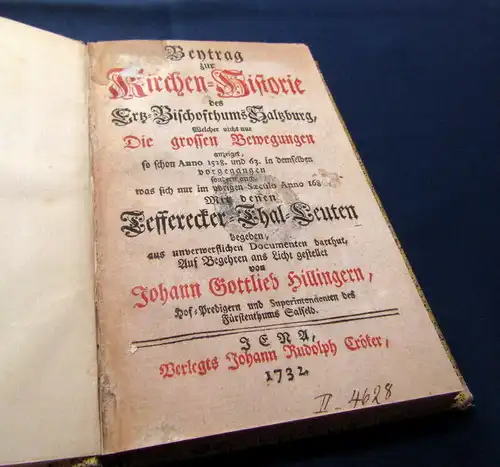 Beytrag
zur
Kirchen-Historie
des
Ertz-Bischofthums Saltzburg,
Welcher nicht nur
Die grossen Bewegungen
anzeiget,
so schon Anno 1528. und 63. in demselben
vorgegangen
sondern auch
was sich nur im vorigen Sæculo Anno 168
Mit denen
Tefferecker-Thal-Leuten
begeben,
aus unverwerflichen Documenten darthut,
Auf Begehren ans Licht gestellet
von
Johann Gottlieb Hillingern,
Hof-Predigern und Superintendenten des
Fürstenthums Salfeld.
JENA,
Verlegts Johann Rudolph Cröker,
1732.
II - 4628